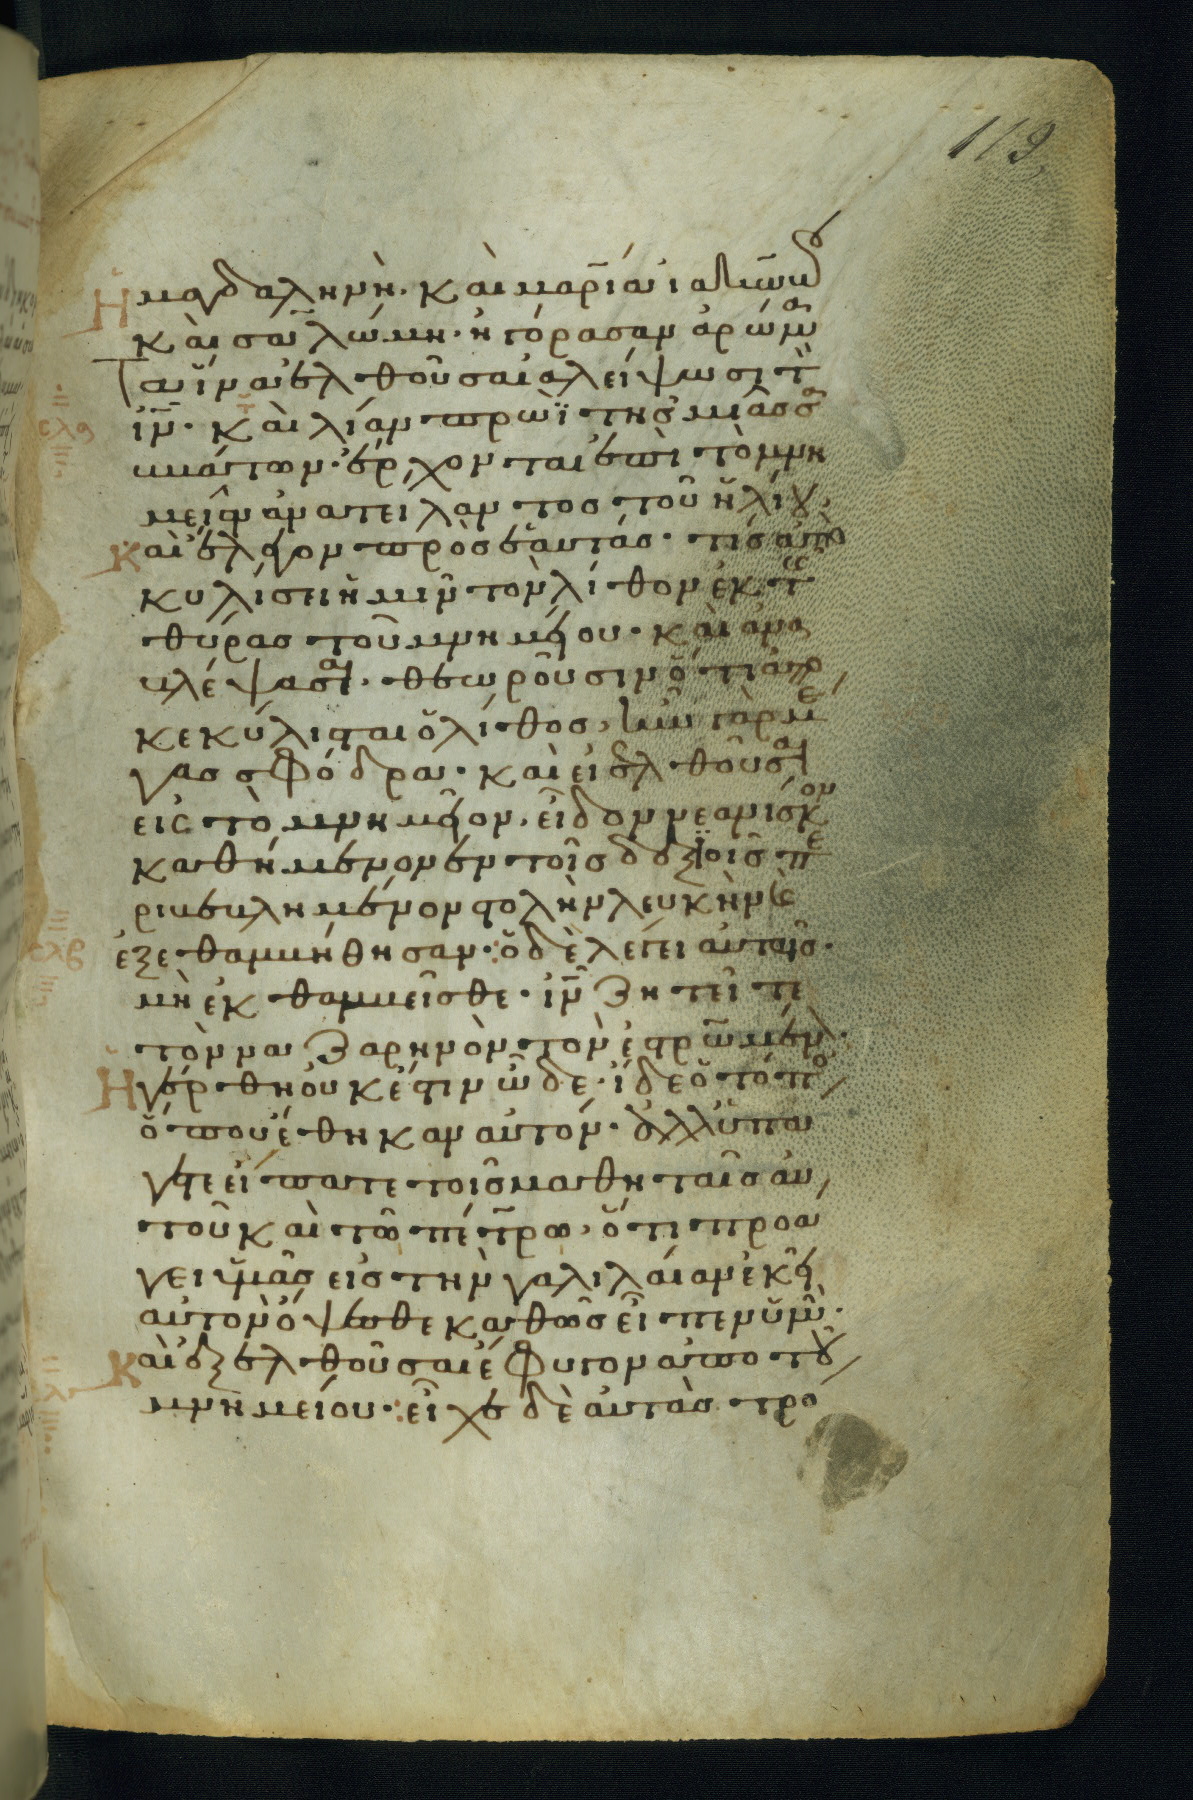 113
Ἡ μαγδαληνὴ· καὶ μαρία ἰακώβ
καὶ σαλώμη· ἠγόρασαν ἀρώμα
τα ἵνα ἐλθοῦσαι ἀλείψωσι τὸ
ιν· καὶ λίαν πρωῒ τῆς μιᾶς σα
ββάτων· ἔρχονται ἐπὶ τὸ μνη
μεῖον ἀνατείλαντος τοῦ ἡλίου,
καὶ ἔλεγον πρὸς ἑαυτάς· τίς ἀπο
κυλίσει ἡμῖν τὸν λίθον ἐκ τῆς
θύρας τοῦ μνημείου· καὶ ἀνα
βλέψασαι· θεωροῦσιν ὅτι ἀπο
κεκύλισται ὁ λίθος, ἦν γὰρ μέ
γας σφόδρα· καὶ εἰσελθοῦσαι
εἰς τὸ μνημεῖον, εἶδον νεανίσκον
καθήμενον ἐν τοῖς δεξιοῖς πε
ριβεβλημένον στολὴν λευκὴν (καὶ)
ἐξεθαμβήθησαν· ὁ δὲ λέγει αὐταῖς·
μὴ ἐκθαμβεῖσθε· ιν ζητεῖτε
τὸν ναζαρηνὸν τὸν ἐστρωμέν·
Ἠγέρθη οὐκ ἔστιν ὧδε· ἴδε ὁ τόπο
ὅπου ἔθηκαν αὐτόν· ἀλλ ὑπά
γετε εἴπατε τοῖς μαθηταῖς αὐ
τοῦ καὶ τῶ πέτρω, ὅτι προά
γει ὑμᾶς εἰς τὴν γαλιλαίαν ἐκεῖ
αὐτὸν ὄψεσθε καθὼς εἶπεν ὑμῖν·
Καὶ ἐξελθοῦσαι ἔφυγον ἀπο τοῦ
μνημείου· εἶχε δὲ αὐτὰς τρό
σλα
σλβ